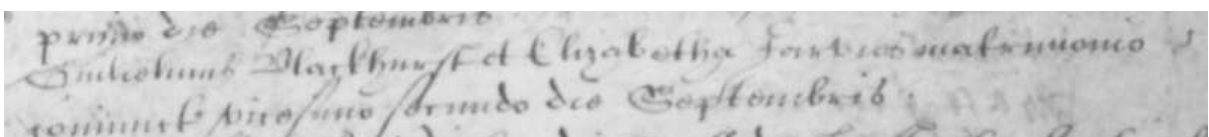 primo die Septembris
Guilielmus Blackhurst et Elizabetha Jarvies matrimonio
coniunct vicesimo secundo die Septembris.